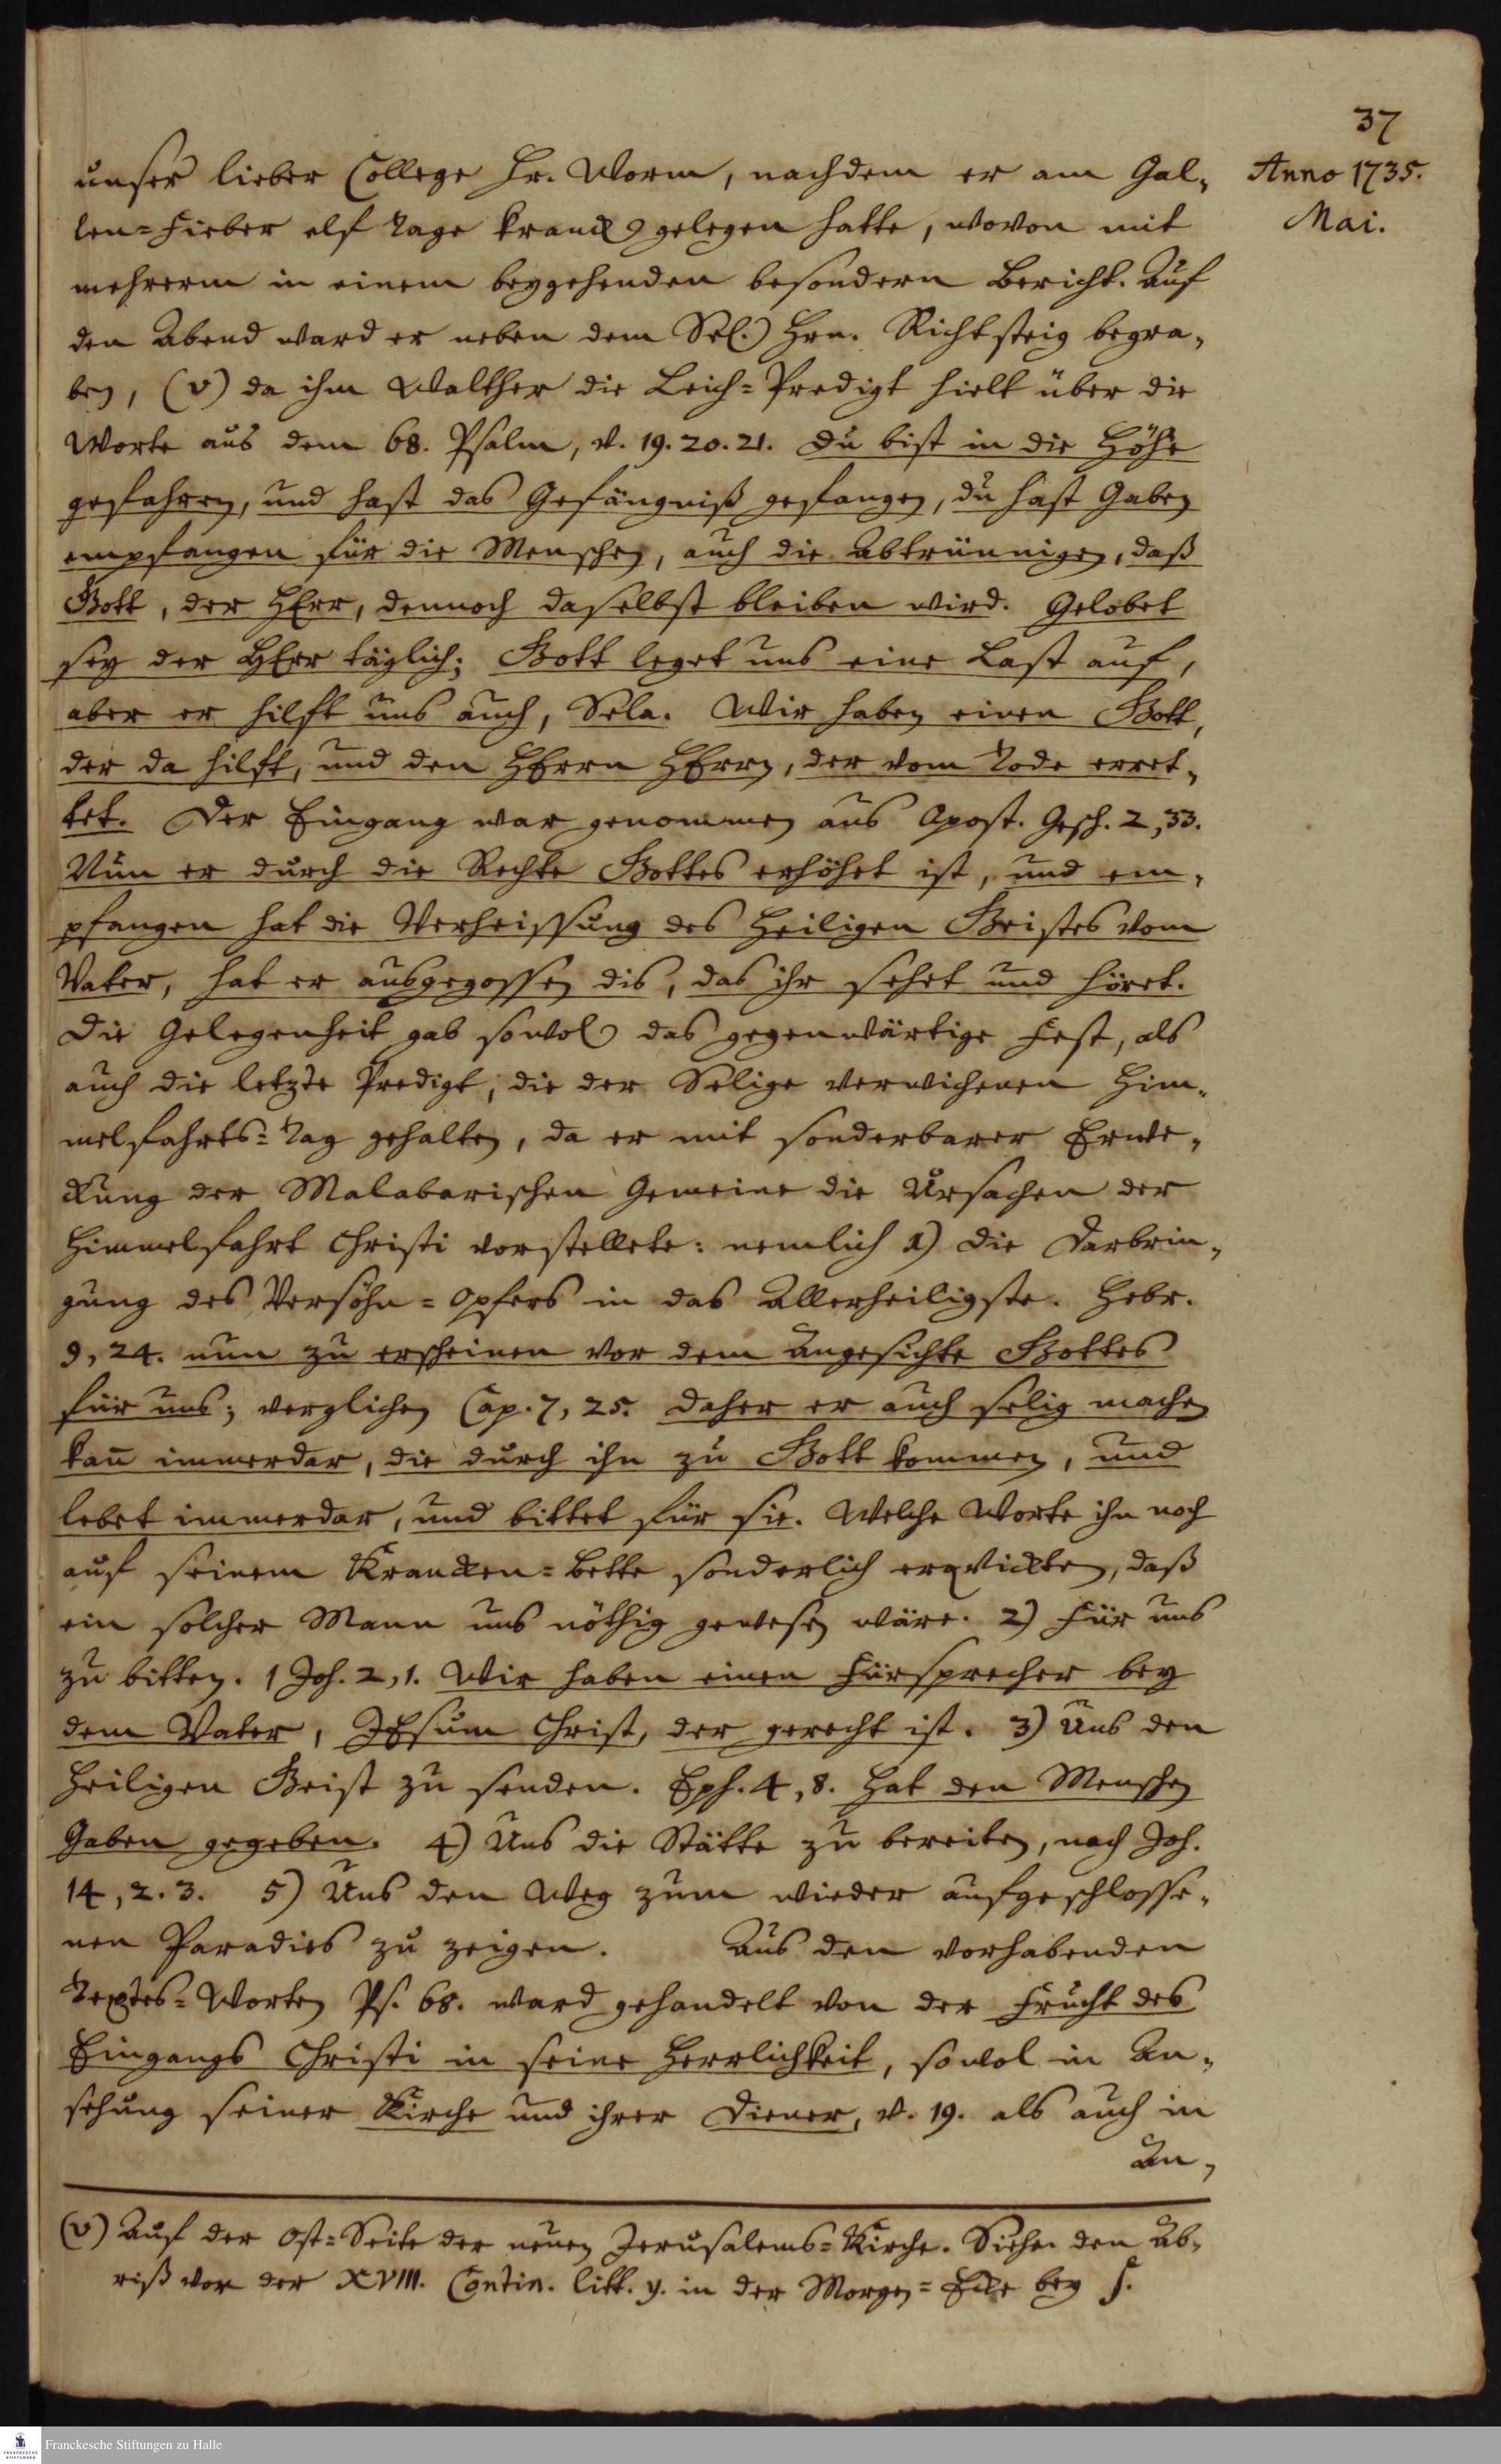 37
Anno 1735.
Mai.
unser lieber College Hr. Worm, nachdem er am Gal-
len=Fieber elf Tage kranck gelegen hatte, wovon mit
mehrerm in einem beygehenden besondern Bericht. Auf
den Abend ward er neben dem Sel. Hrn. Richtsteig begra-
ben, (v) da ihm Walther die Leich=Predigt hielt über die
Worte aus dem 68. Psalm, v. 19. 20. 21. Du bist in die Höhe
gefahren, und hast das Gefängniß gefangen, du hast Gaben
empfangen für die Menschen, auch die Abtrünnigen, daß
Gott, der HErr, dennoch daselbst bleiben wird. Gelobet
sey der HErr täglich; Gott leget uns eine Last auf,
aber er hilft uns auch, Sela. Wir haben einen Gott,
der da hilft, und den HErrn HErrn, der vom Tode erret-
tet. Der Eingang war genommen aus Apost. Gesch. 2, 33.
Nun er durch die Rechte Gottes erhöhet ist, und em-
pfangen hat die Verheissung des Heiligen Geistes vom
Vater, hat er ausgegossen dis, das ihr sehet und höret.
Die Gelegenheit gab sowol das gegenwärtige Fest, als
auch die letzte Predigt, die der Selige verwichenen Him-
melfahrts=Tag gehalten, da er mit sonderbarer Erwe-
ckung der Malabarischen Gemeine die Ursachen der
Himmelfahrt Christi vorstellete: nemlich 1) Die Darbrin-
gung des Versöhn=Opfers in das Allerheiligste. Hebr.
9, 24. nun zu erscheinen vor dem Angesichte Gottes
für uns; verglichen Cap. 7, 25. Daher er auch selig machen
kañ immerdar, die durch ihn zu Gott kommen, und
lebet immerdar, und bittet für sie. Welche Worte ihn noch
auf seinem Krancken=Bette sonderlich erqvickten, daß
ein solcher Mann uns nöthig gewesen wäre. 2) Für uns
zu bitten. 1 Joh. 2, 1. Wir haben einen Fürsprecher bey
dem Vater, JEsum Christ, der gerecht ist. 3) Uns den
Heiligen Geist zu senden. Eph. 4, 8. Hat den Menschen
Gaben gegeben. 4) Uns die Stätte zu bereiten, nach Joh.
14, 2. 3. 5) Uns den Weg zum wieder aufgeschlosse-
nen Paradies zu zeigen. Aus den vorhabenden
Textes=Worten Ps. 68. ward gehandelt von der Frucht des
Eingangs Christi in seine Herrlichkeit, sowol in An-
sehung seiner Kirche und ihrer Diener, v. 19. als auch in
An-
(v) Auf der Ost=Seite der neuen Jerusalems=Kirche. Siehe den Ab-
riß vor der XVIII. Contin. litt. y. in der Morgen=Ecke bey f.
Franckesche Stiftungen zu Halle